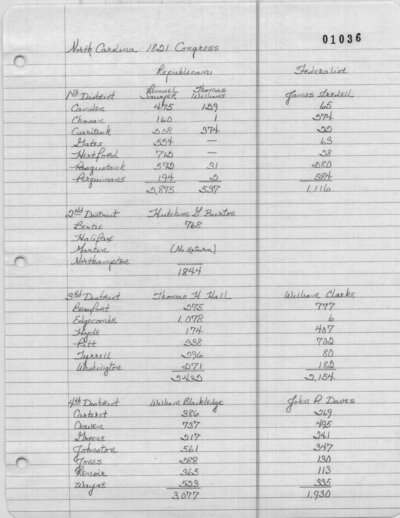 01036
North Carolina 1821 Congress
Republican Federalist
1st District Lemuel Sawyer Thomas Williams James Iredell
Camden 475 129 65
Chowan 160 1 274
Currituck 208 374 22
Gates 554 — 63
Hertford 712 — 28
Pasquotank 572 31 280
Perquimans 194 2 384
2,875 537 1,116
2nd District Hutchins G Burton
Bertie 768
Halifax
Martin (No return)
Northampton
1844
3rd District Thomas H Hall William Clarke
Beaufort 275 777
Edgecombe 1,078 6
Hyde 174 407
Pitt 338 702
Tyrrell 296 80
Washington 271 182
2432 2,154
4th District William Blackledge John R Daves
Carteret 386 269
Craven 737 495
Greene 217 241
Johnston 561 347
Jones 288 130
Lenoir 365 113
Wayne 523 335
3,077 1,930